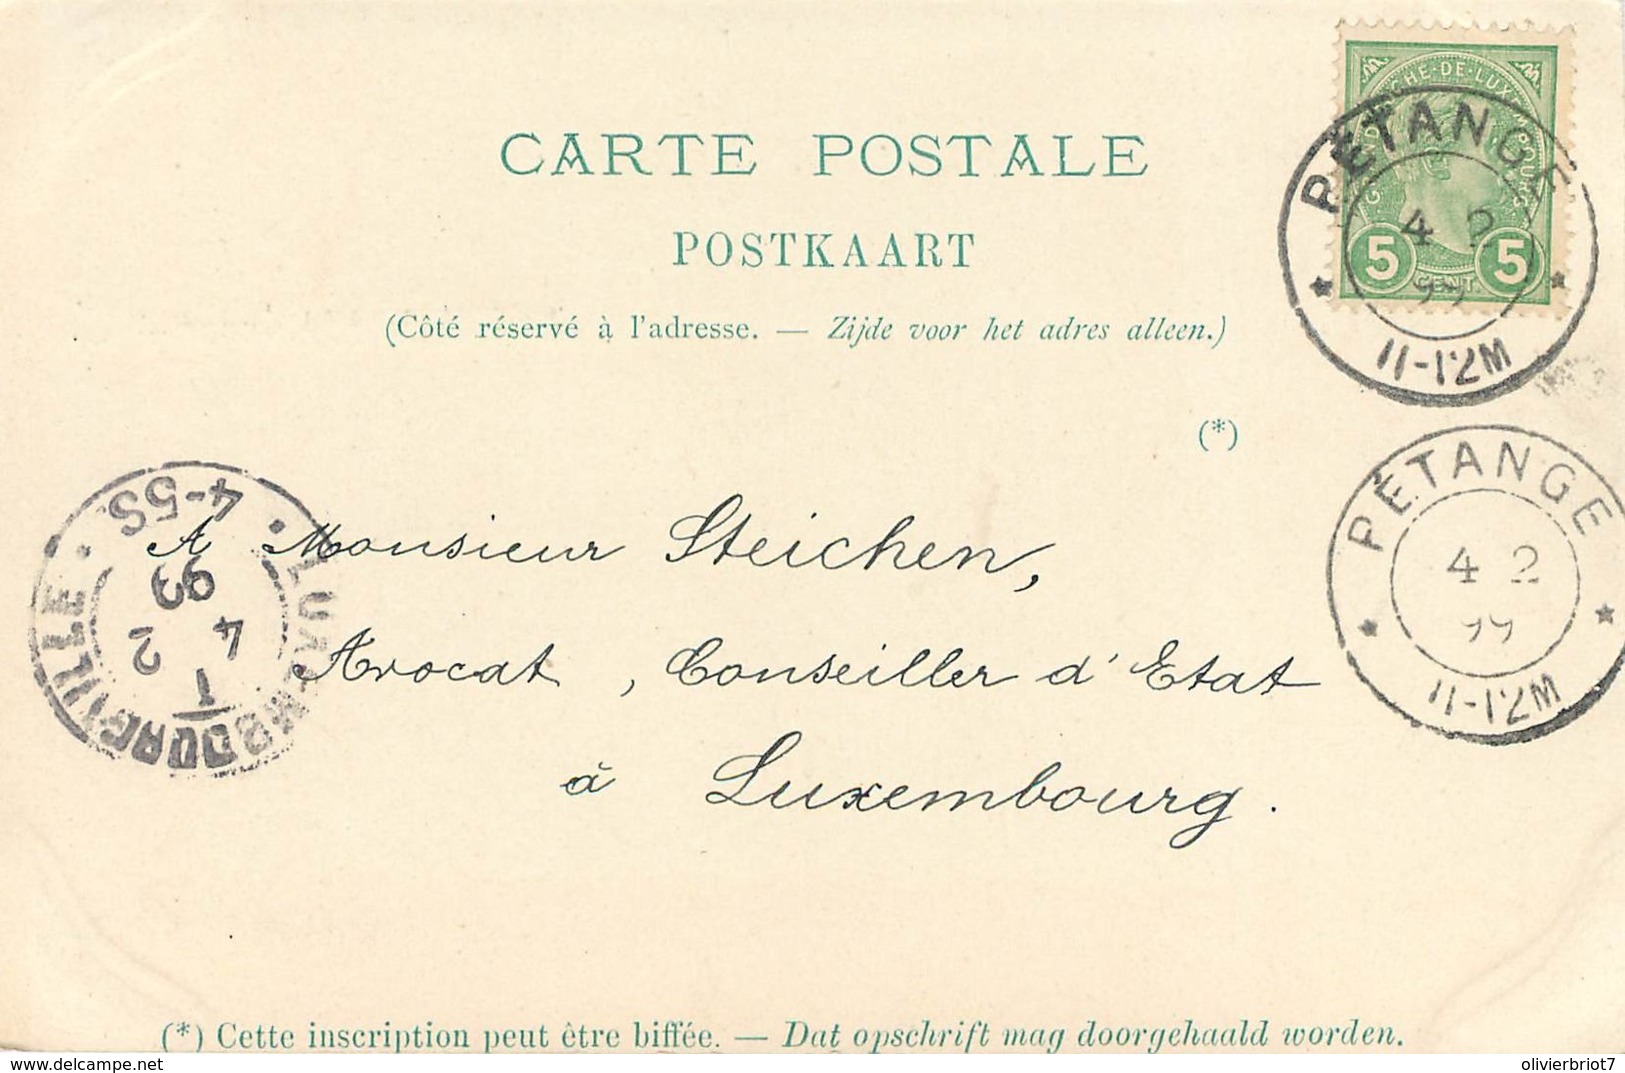 CARTE POSTALE
POSTKAART
(Côté réservé à l'adresse. — Zijde voor het adres alleen.)
(*)
G DE LUXEMBOURG
5 CENT. 5
PÉTANGE
4 2
99
11-12M
PÉTANGE
4 2
99
11-12M
LUXEMBOURG-VILLE
4-5S
4 2
A Monsieur Steichen,
Avocat, Conseiller d'Etat
à Luxembourg.
(*) Cette inscription peut être biffée. — Dat opschrift mag doorgehaald worden.
delcampe.net
olivierbriot7